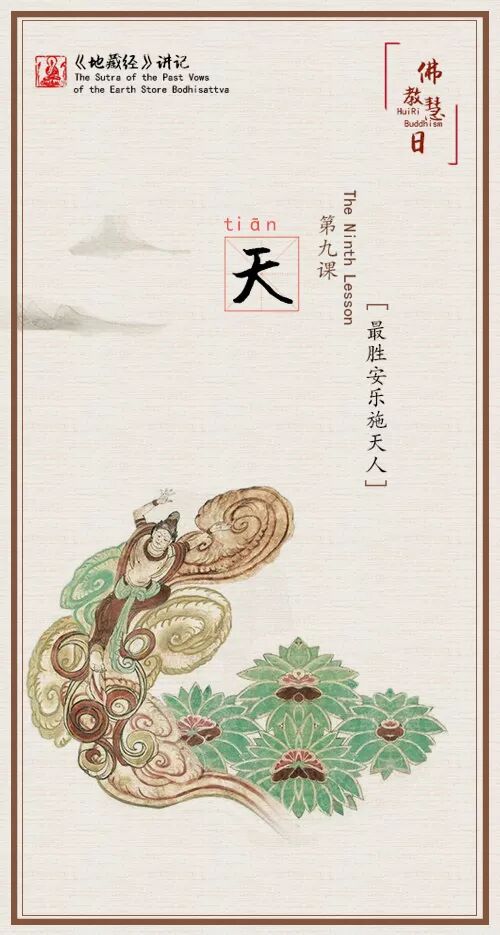 《地藏经》讲记
The Sutra of the Past Vows
of the Earth Store Bodhisattva
佛教慧日
HuiRi
Buddhism
tiān
天
第九课
The Ninth Lesson
[最胜安乐施天人]